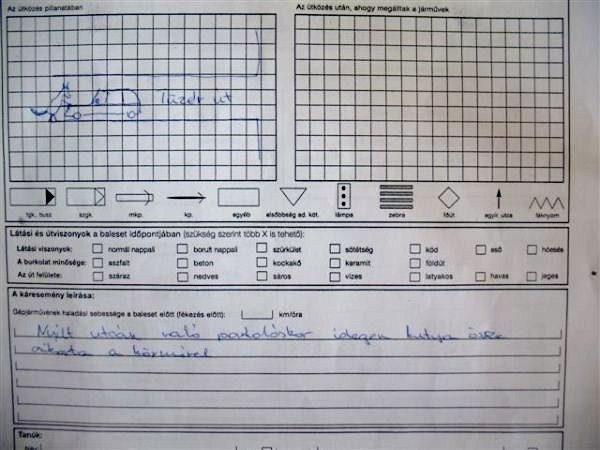 Az ütközés pillanatában
Az ütközés után, ahogy megálltak a járművek
Tüzér út
tgk., busz
szgk.
mkp.
kp.
egyéb
elsőbbség ad. köt.
lámpa
zebra
főút
egyir. utca
féknyom
Látási és útviszonyok a baleset időpontjában (szükség szerint több X is tehető):
Látási viszonyok: normál nappali borult nappali szürkület sötétség köd eső hóesés
A burkolat minősége: aszfalt beton kockakő keramit földút
Az út felülete: száraz nedves sáros vizes latyakos havas jeges
A káresemény leírása:
Gépjárművének haladási sebessége a baleset előtt (fékezés előtt): km/óra
Nyílt utcán való parkoláskor idegen kutya össze
a körmével
Tanúk: